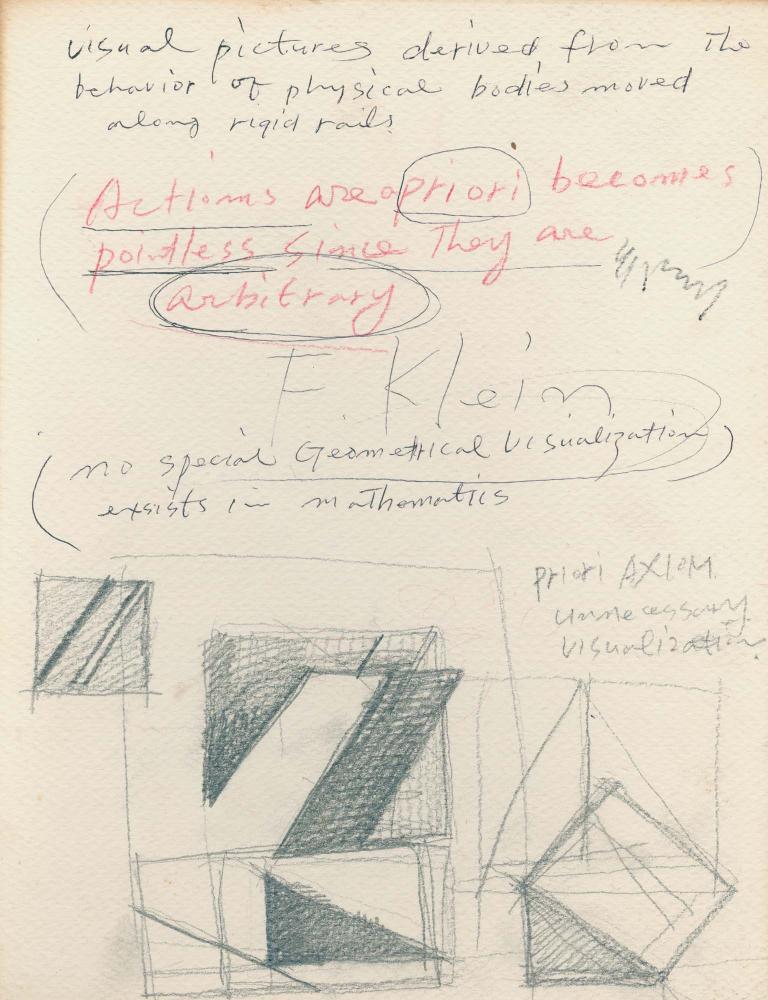 visual pictures derived from The
behavior of physical bodies moved
along rigid rails
(Actions are apriori becomes
pointless since They are
arbitrary)
F. Klein
(no special Geometrical Visualization)
exsists in mathematics
priori AXIOM
unnecessary
visualization